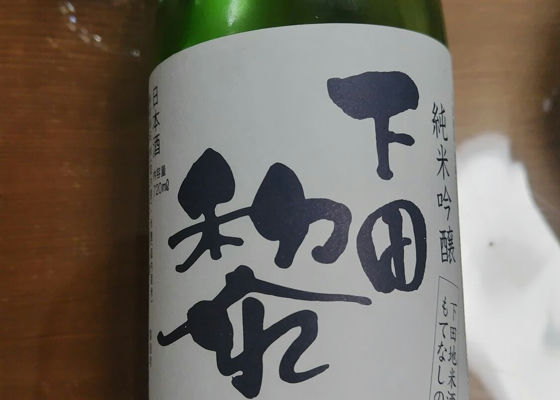 純米吟醸
下田地米酒
もてなしの
下田
黎
日本酒
内容量
720mℓ